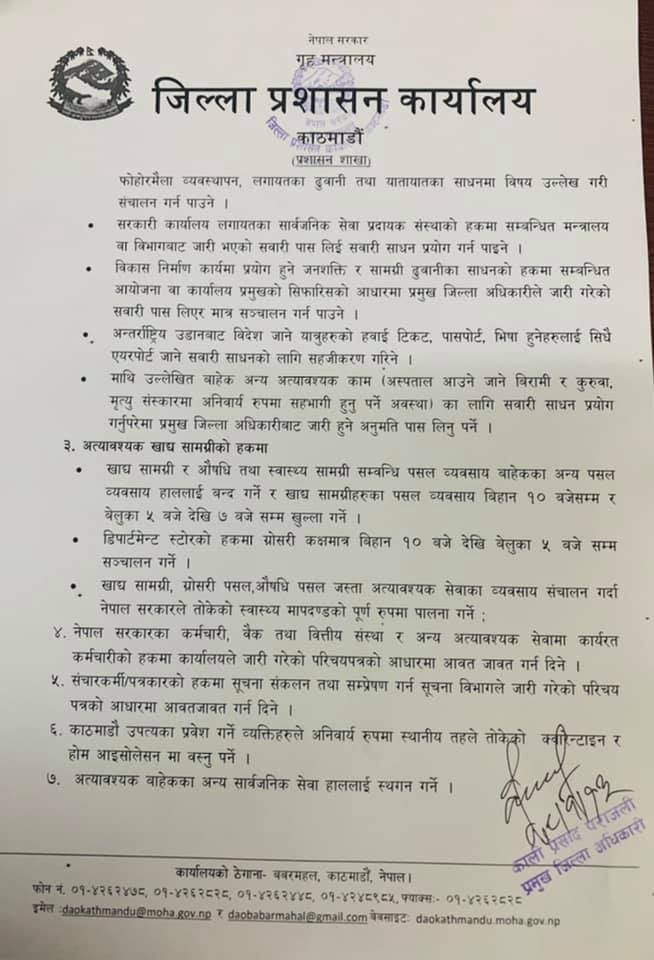 नेपाल सरकार
गृह मन्त्रालय
जिल्ला प्रशासन कार्यालय
काठमाडौं
(प्रशासन शाखा)
फोहोरमैला व्यवस्थापन, लगायतका ढुवानी तथा यातायातका साधनमा विषय उल्लेख गरी
संचालन गर्न पाउने ।
• सरकारी कार्यालय लगायतका सार्वजनिक सेवा प्रदायक संस्थाको हकमा सम्बन्धित मन्त्रालय
वा विभागबाट जारी भएको सवारी पास लिई सवारी साधन प्रयोग गर्न पाइने ।
• विकास निर्माण कार्यमा प्रयोग हुने जनशक्ति र सामग्री ढुवानीका साधनको हकमा सम्बन्धित
आयोजना वा कार्यालय प्रमुखको सिफारिसको आधारमा प्रमुख जिल्ला अधिकारीले जारी गरेको
सवारी पास लिएर मात्र सञ्चालन गर्न पाउने ।
• अन्तर्राष्ट्रिय उडानबाट विदेश जाने यात्रुहरुको हवाई टिकट, पासपोर्ट, भिषा हुनेहरुलाई सिधै
एयरपोर्ट जाने सवारी साधनको लागि सहजीकरण गरिने ।
• माथि उल्लेखित बाहेक अन्य अत्यावश्यक काम (अस्पताल आउने जाने बिरामी र कुरुवा,
मृत्यु संस्कारमा अनिवार्य रुपमा सहभागी हुनु पर्ने अवस्था) का लागि सवारी साधन प्रयोग
गर्नुपरेमा प्रमुख जिल्ला अधिकारीबाट जारी हुने अनुमति पास लिनु पर्ने ।
३. अत्यावश्यक खाद्य सामग्रीको हकमा
• खाद्य सामग्री र औषधि तथा स्वास्थ्य सामग्री सम्बन्धि पसल व्यवसाय बाहेकका अन्य पसल
व्यवसाय हाललाई बन्द गर्ने र खाद्य सामग्रीहरुका पसल व्यवसाय विहान १० बजेसम्म र
बेलुका ५ बजे देखि ७ बजे सम्म खुल्ला गर्ने ।
• डिपार्टमेन्ट स्टोरको हकमा ग्रोसरी कक्षमात्र विहान १० बजे देखि बेलुका ५ बजे सम्म
सञ्चालन गर्ने ।
• खाद्य सामग्री, ग्रोसरी पसल,औषधि पसल जस्ता अत्यावश्यक सेवाका व्यवसाय संचालन गर्दा
नेपाल सरकारले तोकेको स्वास्थ्य मापदण्डको पूर्ण रुपमा पालना गर्ने ;
४. नेपाल सरकारका कर्मचारी, वैक तथा वित्तीय संस्था र अन्य अत्यावश्यक सेवामा कार्यरत
कर्मचारीको हकमा कार्यालयले जारी गरेको परिचयपत्रको आधारमा आवत जावत गर्न दिने ।
५. संचारकर्मी/पत्रकारको हकमा सूचना संकलन तथा सम्प्रेषण गर्न सूचना विभागले जारी गरेको परिचय
पत्रको आधारमा आवतजावत गर्न दिने ।
६. काठमाडौं उपत्यका प्रवेश गर्ने व्यक्तिहरुले अनिवार्य रुपमा स्थानीय तहले तोकेको क्वारेन्टाइन र
होम आइसोलेसन मा वस्नु पर्ने ।
७. अत्यावश्यक बाहेकका अन्य सार्वजनिक सेवा हाललाई स्थगन गर्ने ।
काली प्रसाद पराजली
प्रमुख जिल्ला अधिकारी
कार्यालयको ठेगाना- बबरमहल, काठमाडौं, नेपाल।
फोन नं. ०१-४२६२४७८, ०१-४२६२८२८, ०१-४२६२४४८, ०१-४२४८९८५, फ्याक्स:- ०१-४२६२८२८
इमेल :daokathmandu@moha.gov.np र daobabarmahal@gmail.com वेबसाइट: daokathmandu.moha.gov.np